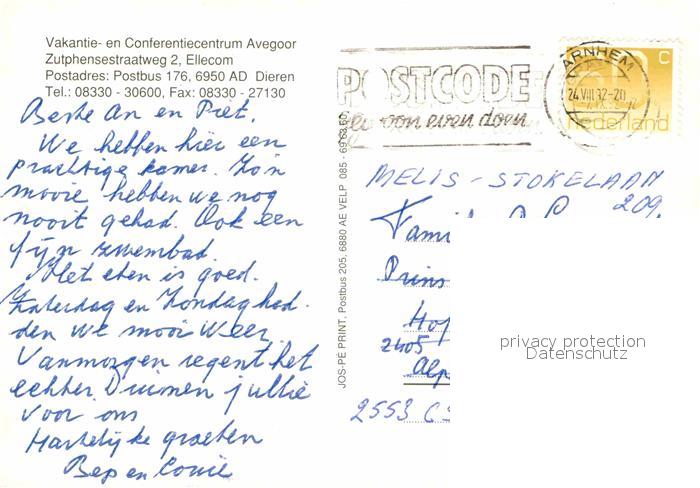 Vakantie- en Conferentiecentrum Avegoor
Zutphensestraatweg 2, Ellecom
Postadres: Postbus 176, 6950 AD Dieren
Tel.: 08330 - 30600, Fax: 08330 - 27130
Beste An en Piet.
We hebben hier een
prachtige kamer. Zo'n
mooie hebben we nog
nooit gehad. Ook een
fijn zwembad.
Het eten is goed.
Zaterdag en Zondag had-
den we mooi weer
Vanmorgen regent het
echter. Duimen jullie
voor ons
Hartelijke groeten
Bep en Louie
JOS-PÉ PRINT. Postbus 205, 6880 AE VELP 085 - 69
POSTCODE
gewoon even doen
ARNHEM
24.VIII.92-20
60 C
nederland
MELIS - STOKELAAN
209.
Fami
Prins
Hof
2405
Alp
2553 C
privacy protection
Datenschutz